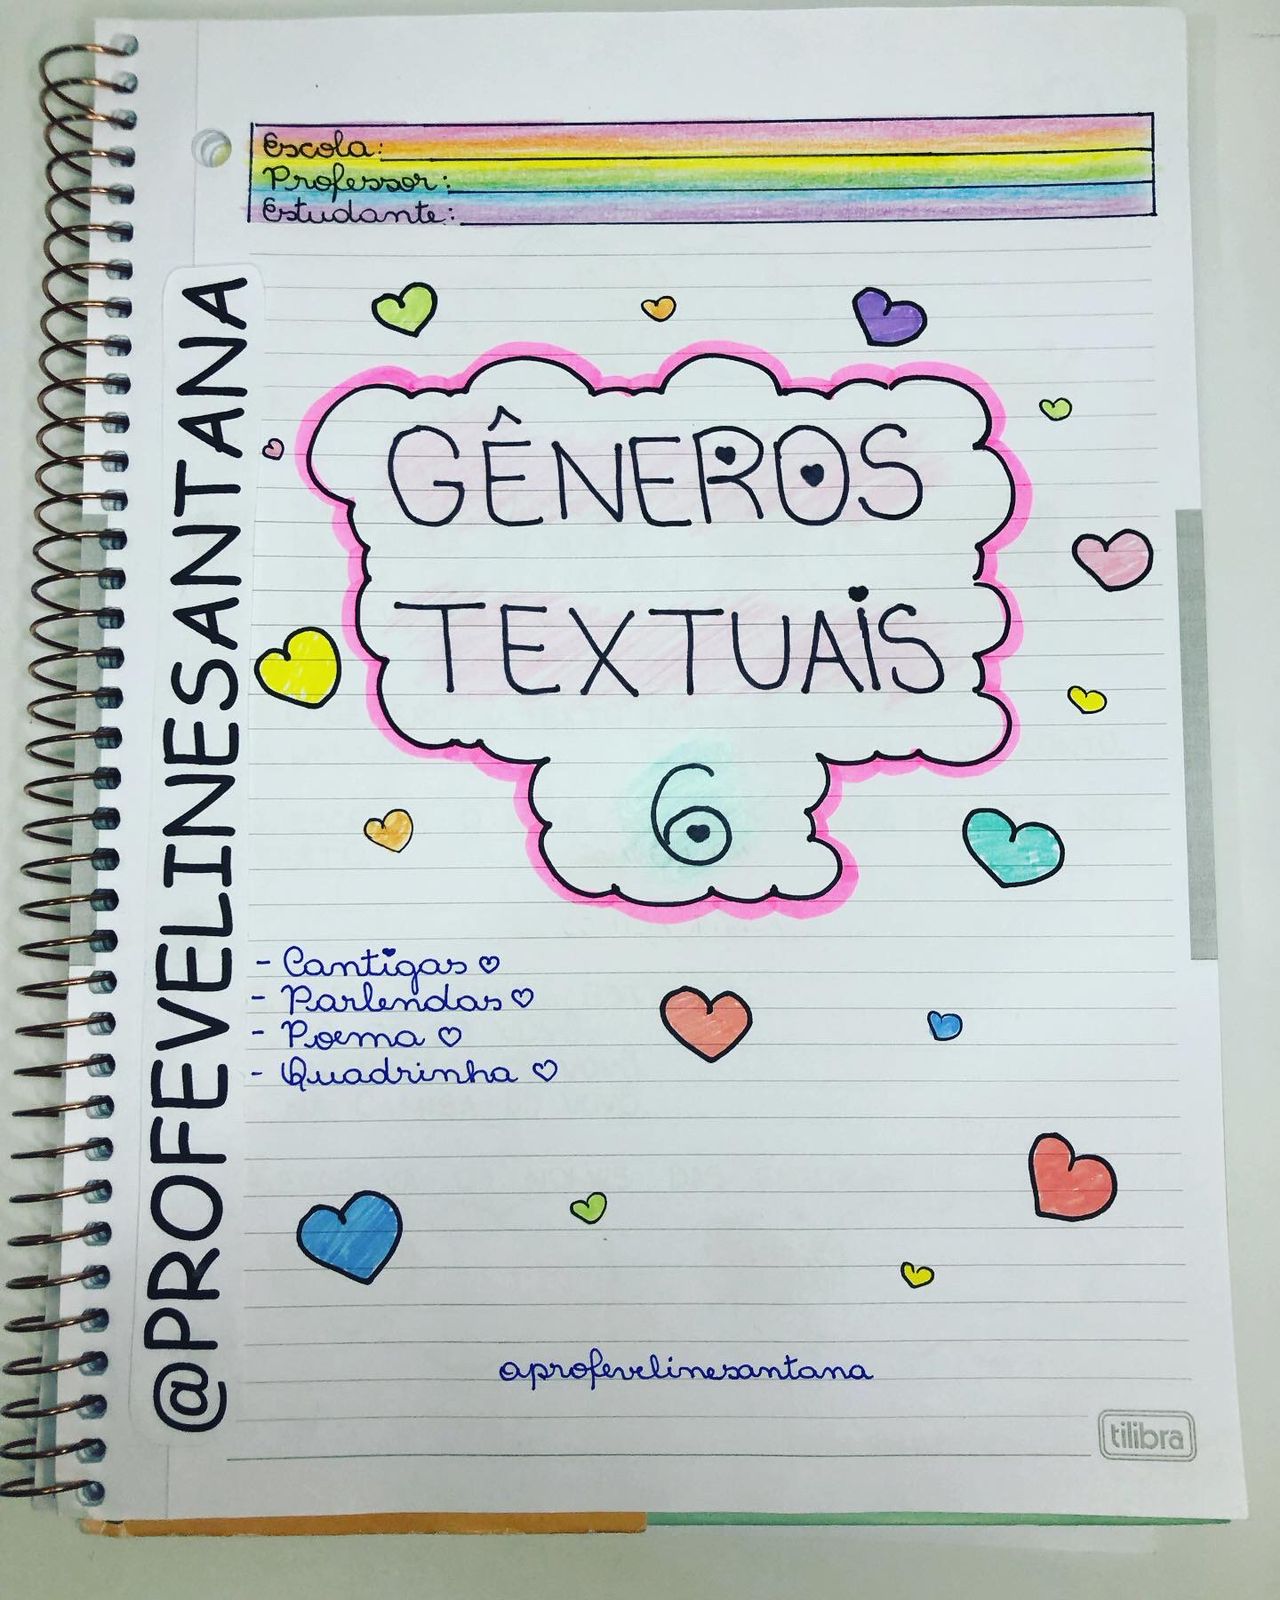 Escola:
Professor:
Estudante:
@PROFEVELINESANTANA
GÊNEROS
TEXTUAIS
6
- Cantigas
- Parlendas
- Poema
- Quadrinha
@profevelinesantana
tilibra